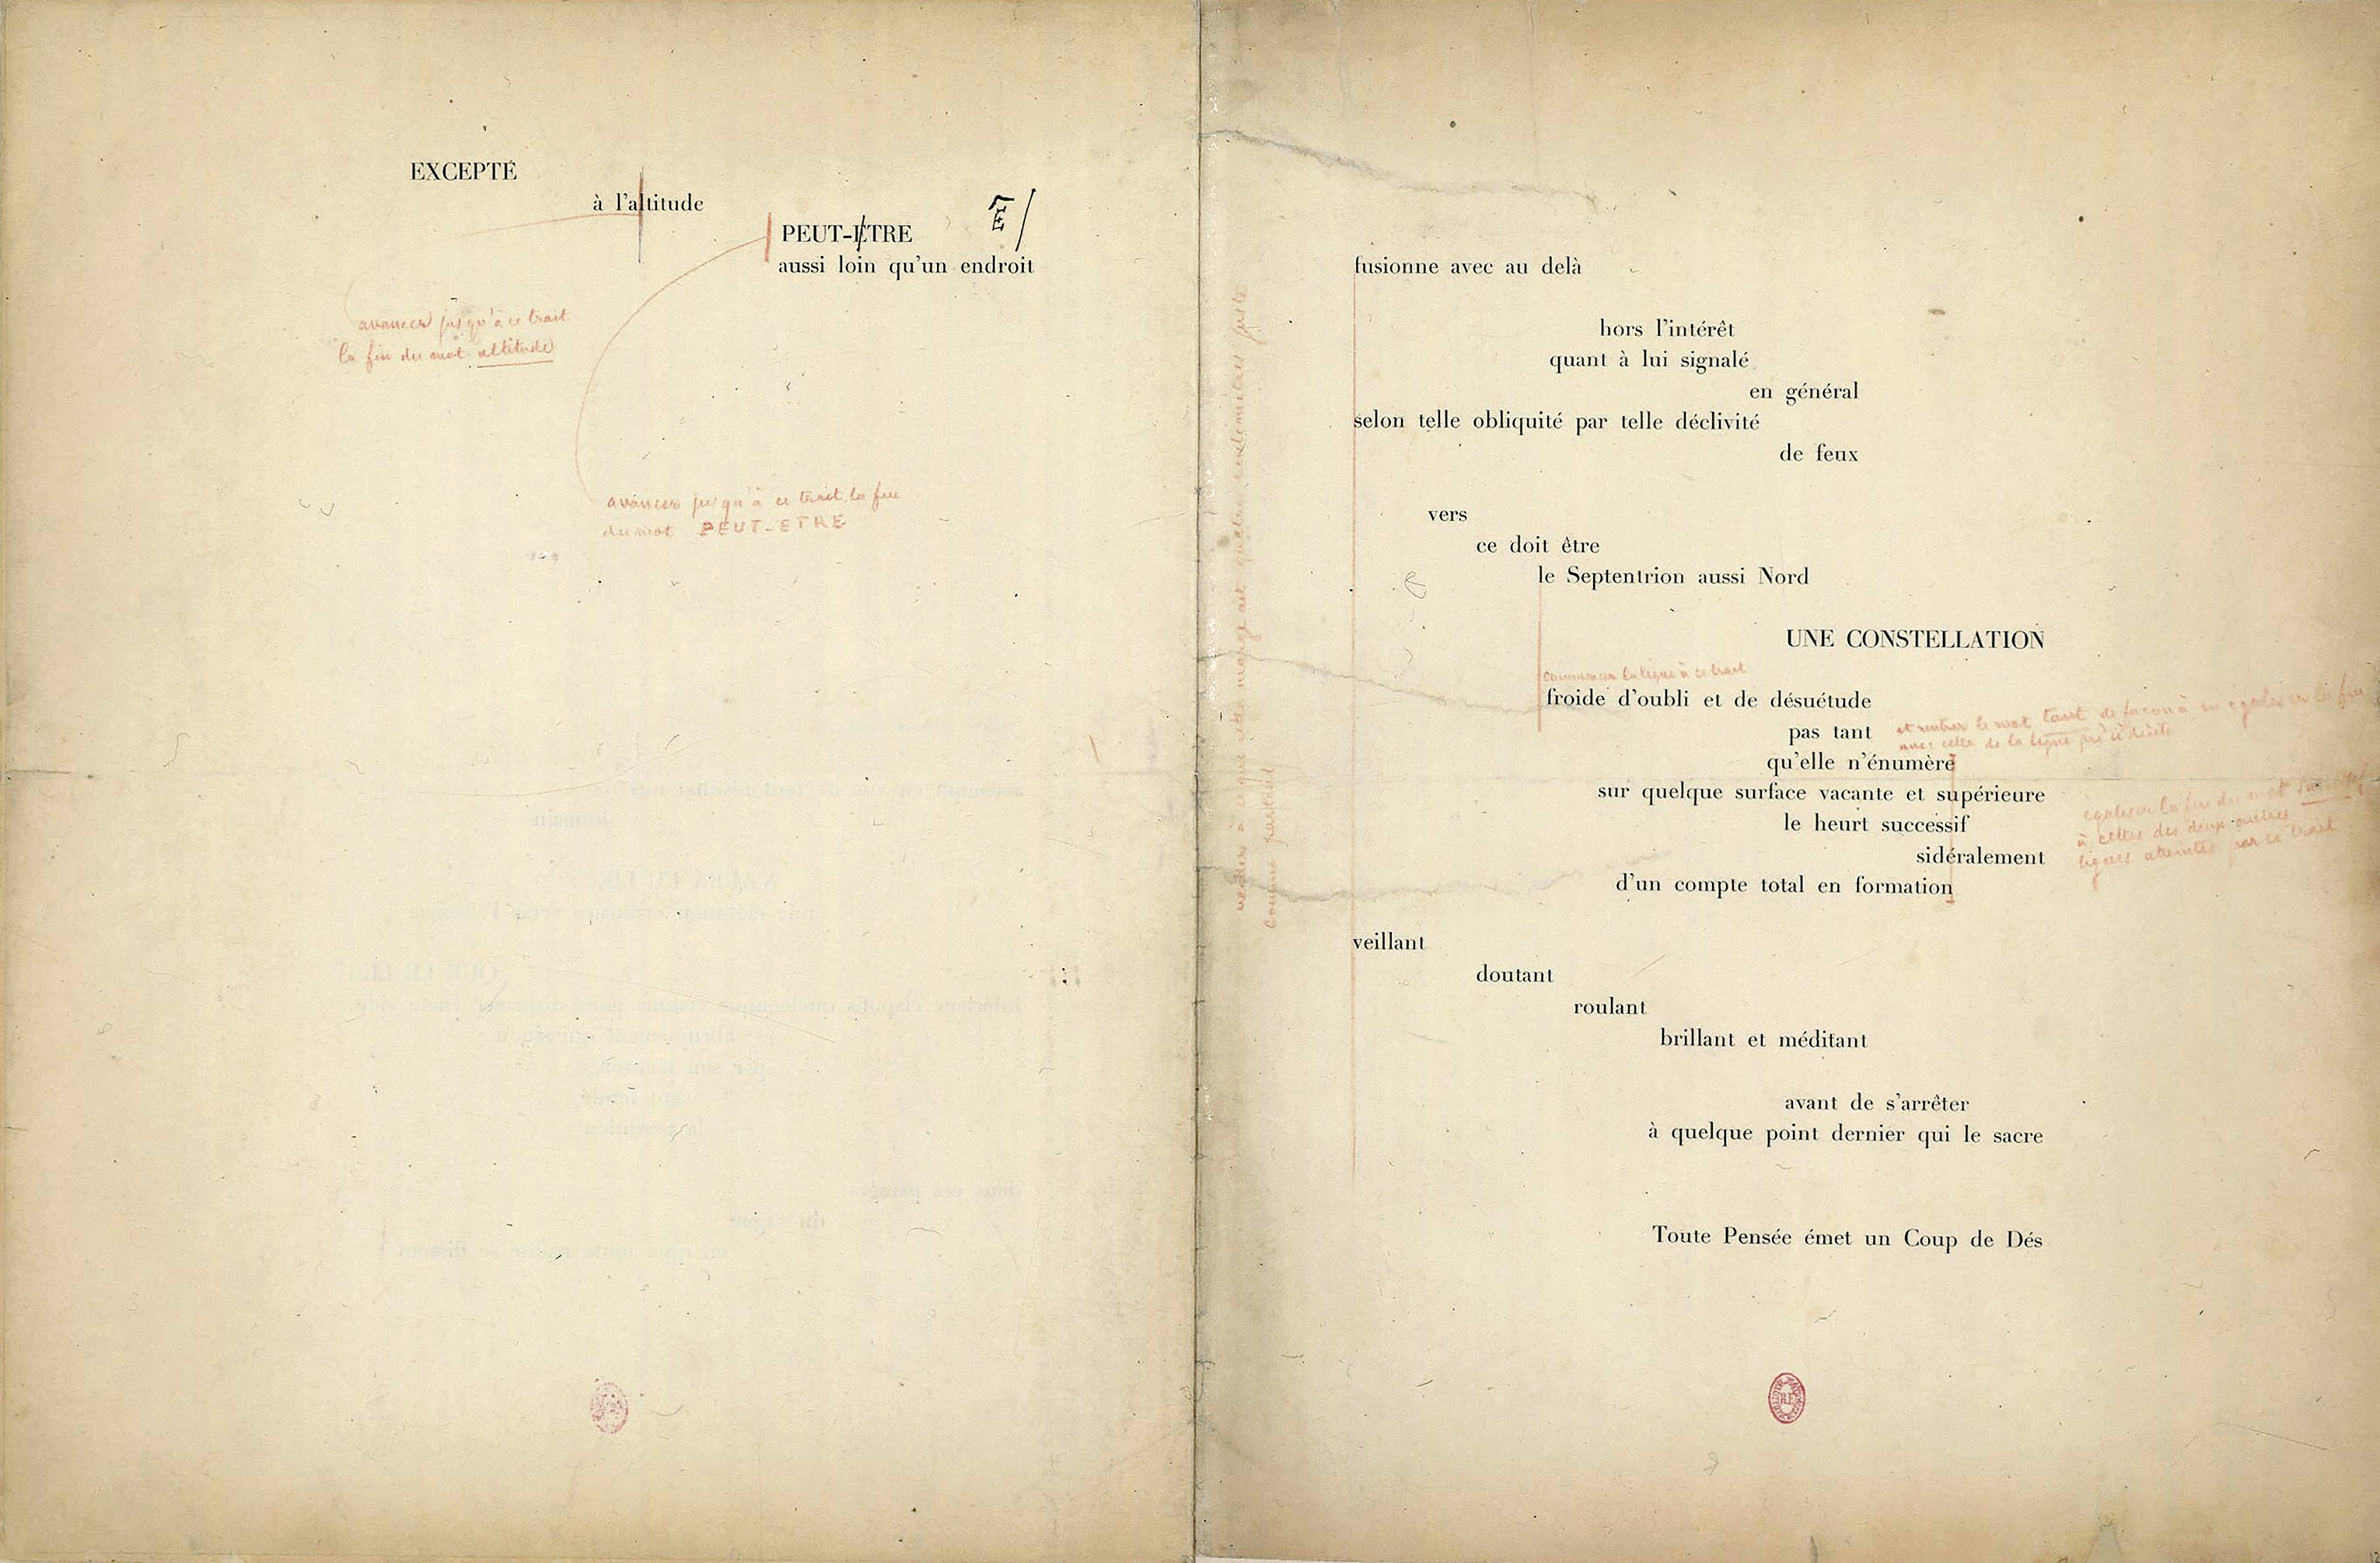 EXCEPTÉ
à l'altitude
PEUT-ETRE
Ê/
aussi loin qu'un endroit
avancer jusqu'à ce trait
la fin du mot altitude
avancer jusqu'à ce trait la fin
du mot PEUT-ETRE
fusionne avec au delà
hors l'intérêt
quant à lui signalé
en général
selon telle obliquité par telle déclivité
de feux
vers
ce doit être
le Septentrion aussi Nord
UNE CONSTELLATION
commencer la ligne à ce trait
froide d'oubli et de désuétude
pas tant
et rentrer le mot tant de façon à en égaliser la fin
avec celle de la ligne précédente
qu'elle n'énumère
sur quelque surface vacante et supérieure
le heurt successif
égaliser la fin du mot successif
à celles des deux autres
lignes atteintes par ce trait
sidéralement
d'un compte total en formation
veiller à ce que cette marge ait quatre centimètres juste
comme partout
veillant
doutant
roulant
brillant et méditant
avant de s'arrêter
à quelque point dernier qui le sacre
Toute Pensée émet un Coup de Dés